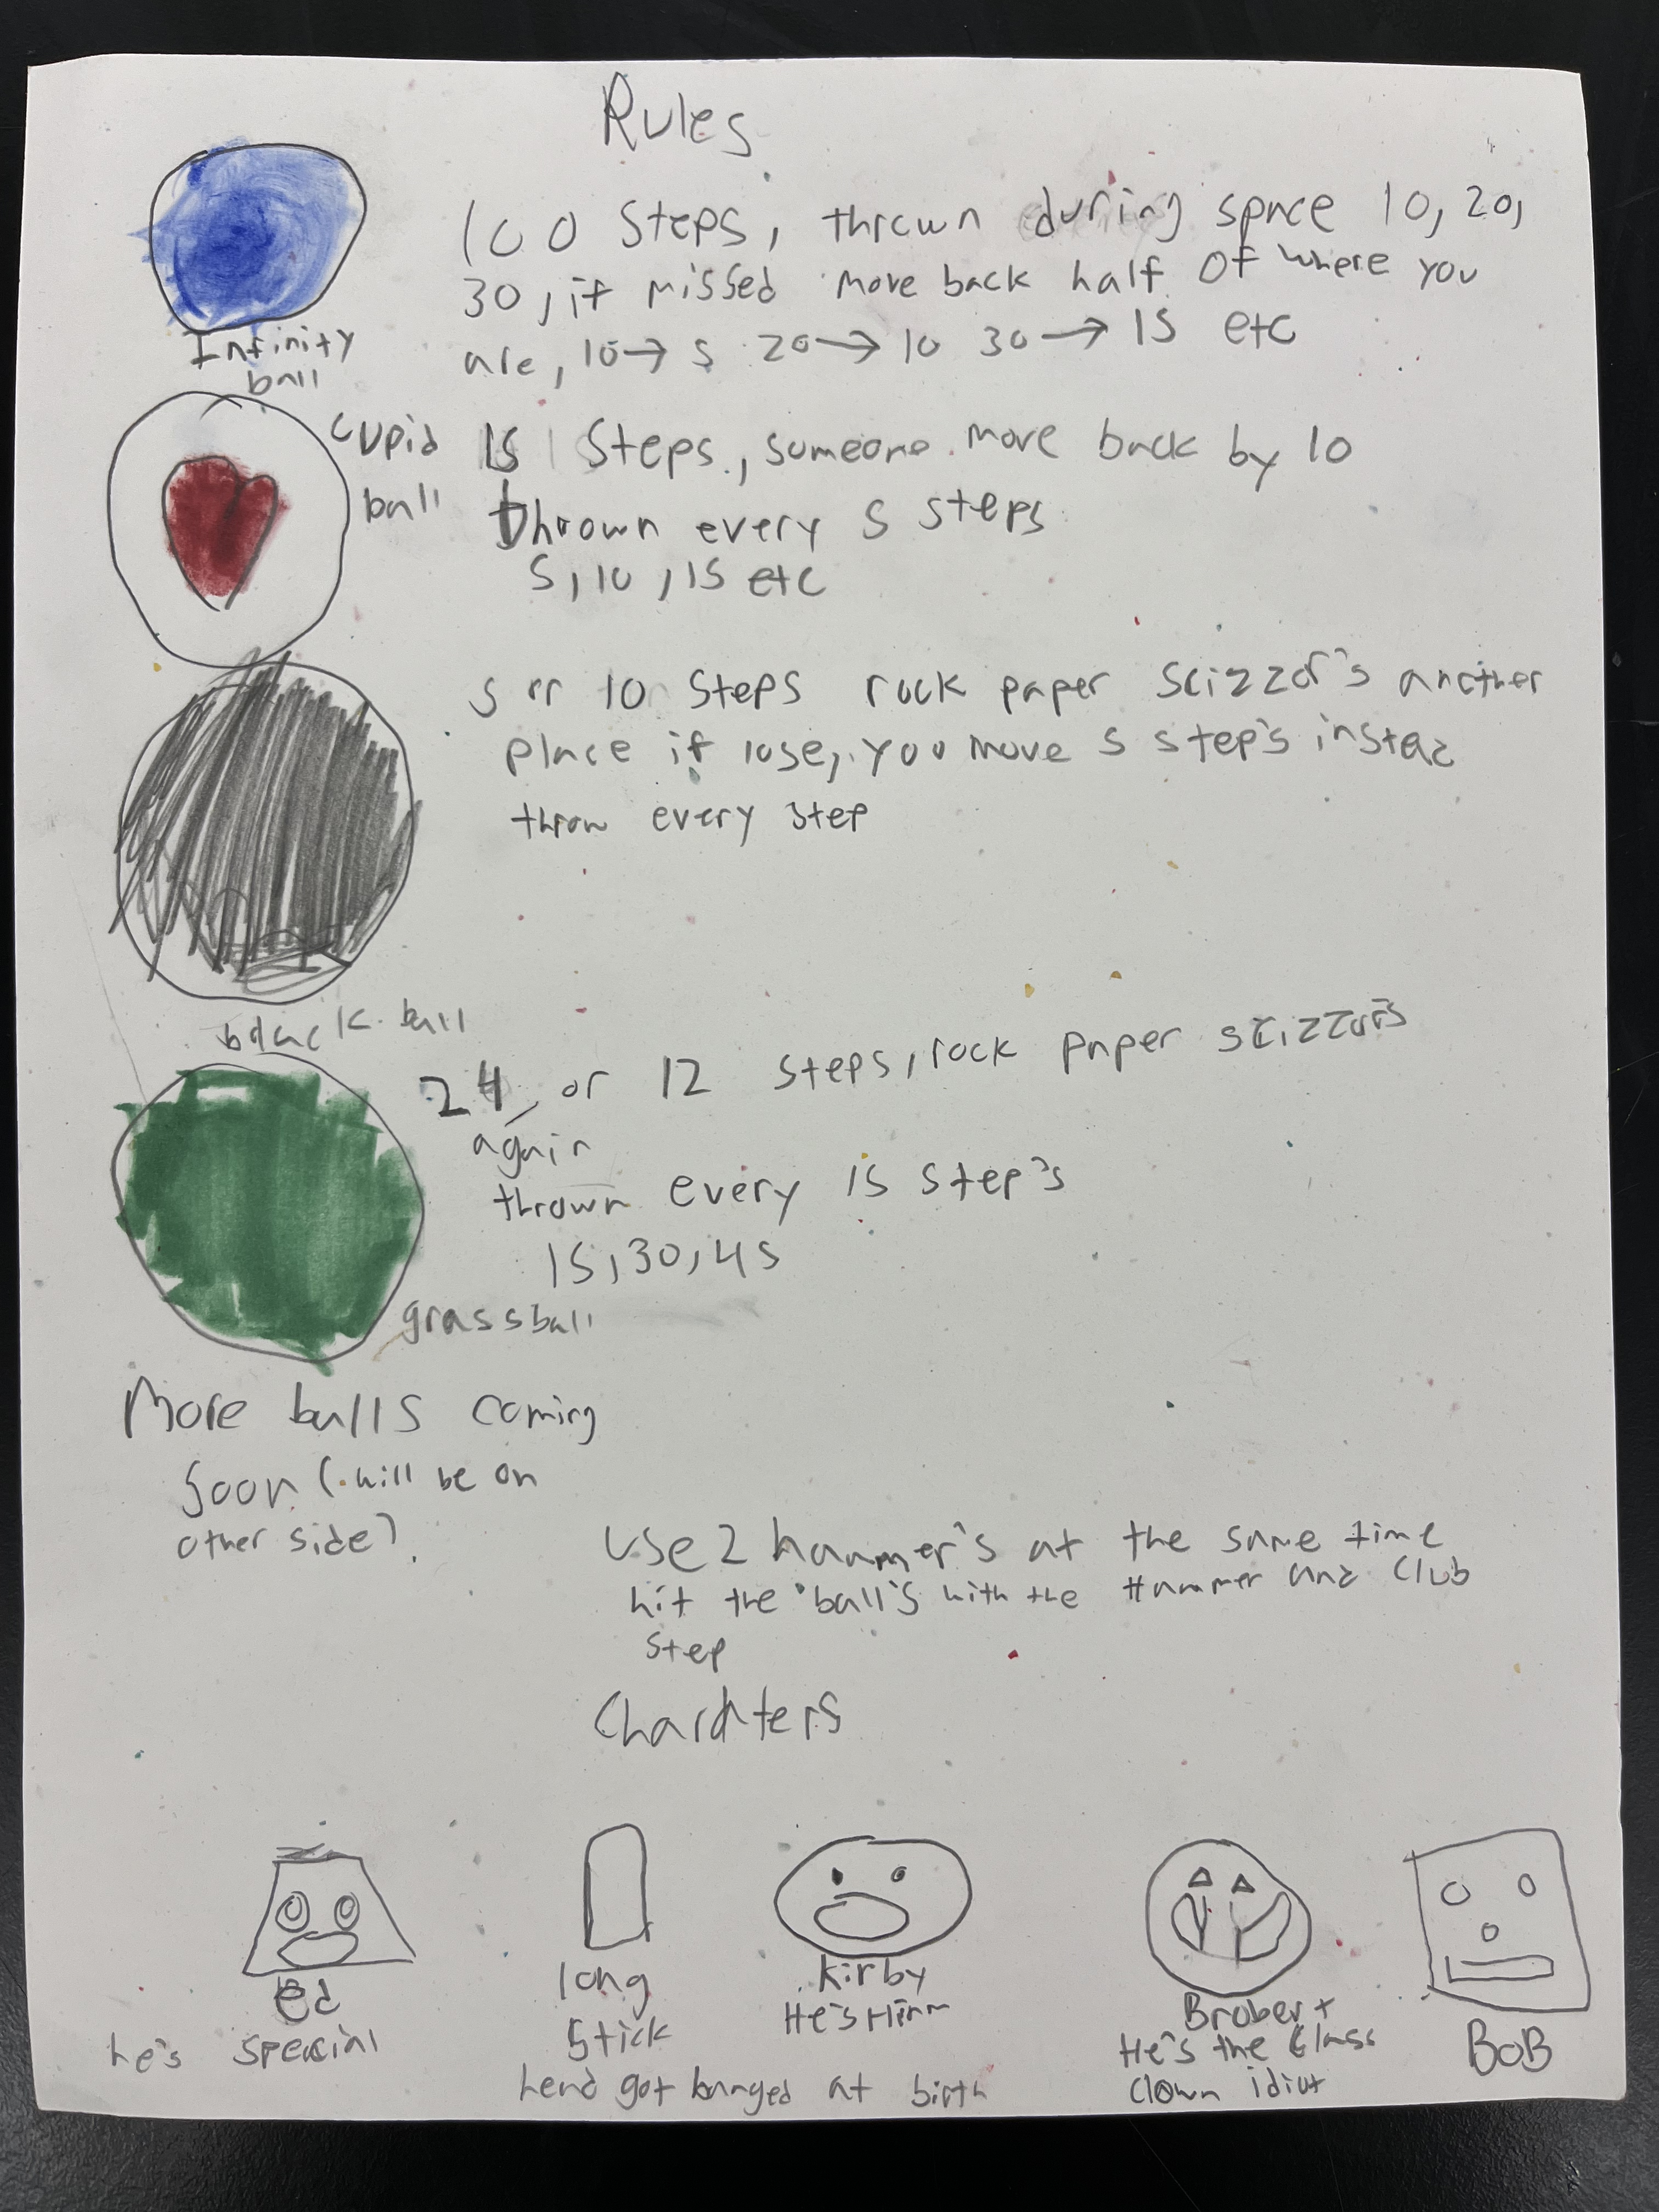 Rules
100 Steps, thrown during space 10, 20,
30, if missed move back half of where you
are, 10→5 20→10 30→15 etc
Infinity
ball
Cupid
ball
15 Steps, someone move back by 10
thrown every 5 steps
5, 10, 15 etc
5 or 10 Steps rock paper scizzor's another
place if lose, you move 5 step's instea
throw every step
black ball
24 or 12 steps, rock paper scizzors
again
thrown every 15 step's
15, 30, 45
grassball
More balls coming
soon (will be on
other side).
use 2 hammer's at the same time
hit the ball's with the Hammer and Club
step
Charahters
ed
he's special
long
Stick
head got banged at birth
Kirby
He's Him
Brobert
He's the Class
Clown idiot
BoB